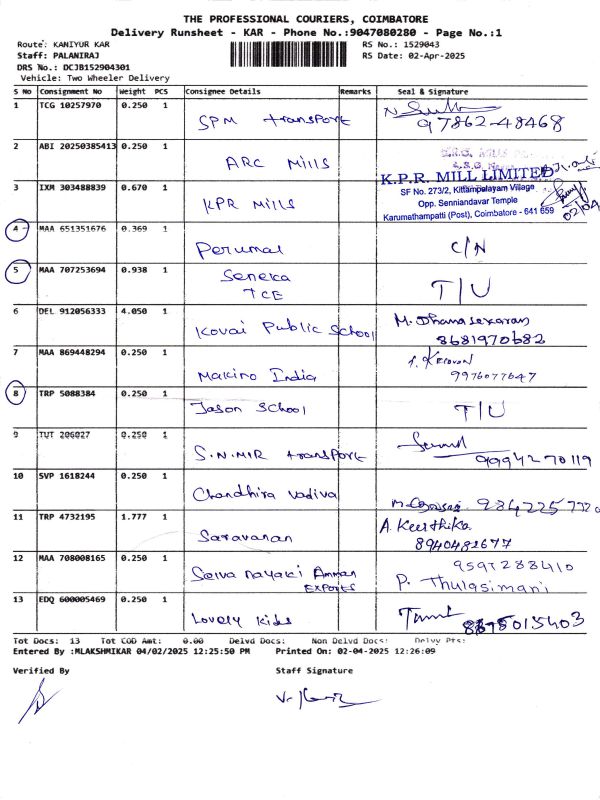 THE PROFESSIONAL COURIERS, COIMBATORE
Delivery Runsheet - KAR - Phone No.:9047080280 - Page No.:1
Route: KANIYUR KAR RS No.: 1529043
Staff: PALANIRAJ RS Date: 02-Apr-2025
DRS No.: DCJB152904301
Vehicle: Two Wheeler Delivery
S No Consignment No Weight PCS Consignee Details Remarks Seal & Signature
1 TCG 10257970 0.250 1 SPM transport 97862-48468
2 ABI 20250385413 0.250 1 ARC Mills
K.P.R. MILL LIMITED
3 IXM 303488839 0.670 1 KPR Mills SF No. 273/2, Kittampalayam Village
Opp. Senniandavar Temple
Karumathampatti (Post), Coimbatore - 641 659
02/04
4 MAA 651351676 0.369 1 Perumal C/N
5 MAA 707253694 0.938 1 Seneka TCE T/U
6 DEL 912056333 4.050 1 Kovai Public School M. Dhanasekaran
8681970682
7 MAA 869448294 0.250 1 Makino India 9976077647
8 TRP 5088384 0.250 1 Jason School T/U
9 TUT 206027 0.250 1 S.N.MIR transport 9994270119
10 SVP 1618244 0.250 1 Chandhira Vadiva
11 TRP 4732195 1.777 1 Saravanan A. Keerthika
8940482677
12 MAA 708008165 0.250 1 Selva nayaki Amman Exports
P. Thulasimani
13 EDQ 600005469 0.250 1 Lovely Kids
Tot Docs: 13 Tot COD Amt: 0.00 Delvd Docs: Non Delvd Docs: Delvy Pts:
Entered By :MLAKSHMIKAR 04/02/2025 12:25:50 PM Printed On: 02-04-2025 12:26:09
Verified By Staff Signature